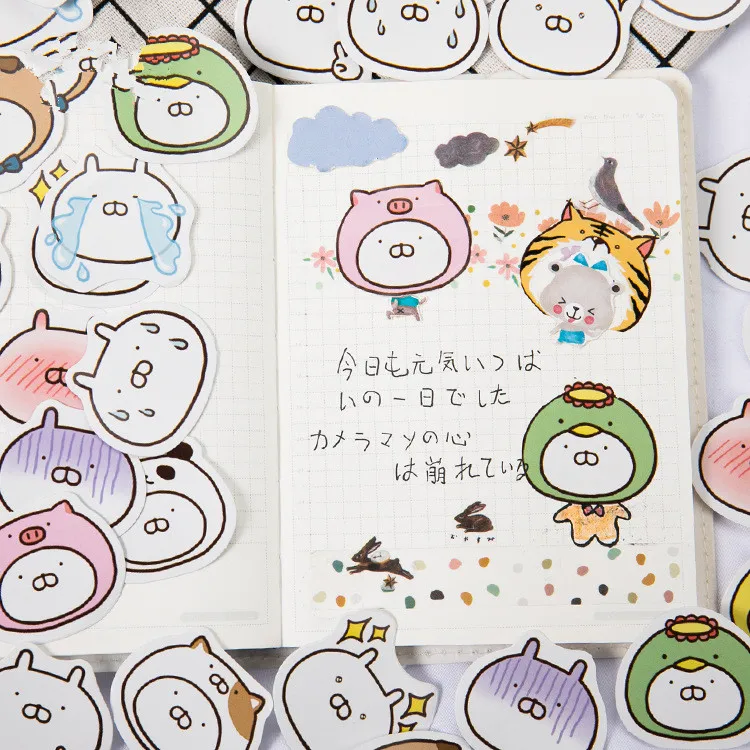 今日も元気いっぱ
いの一日でした
カメラマンの心
は崩れている
おやすみ